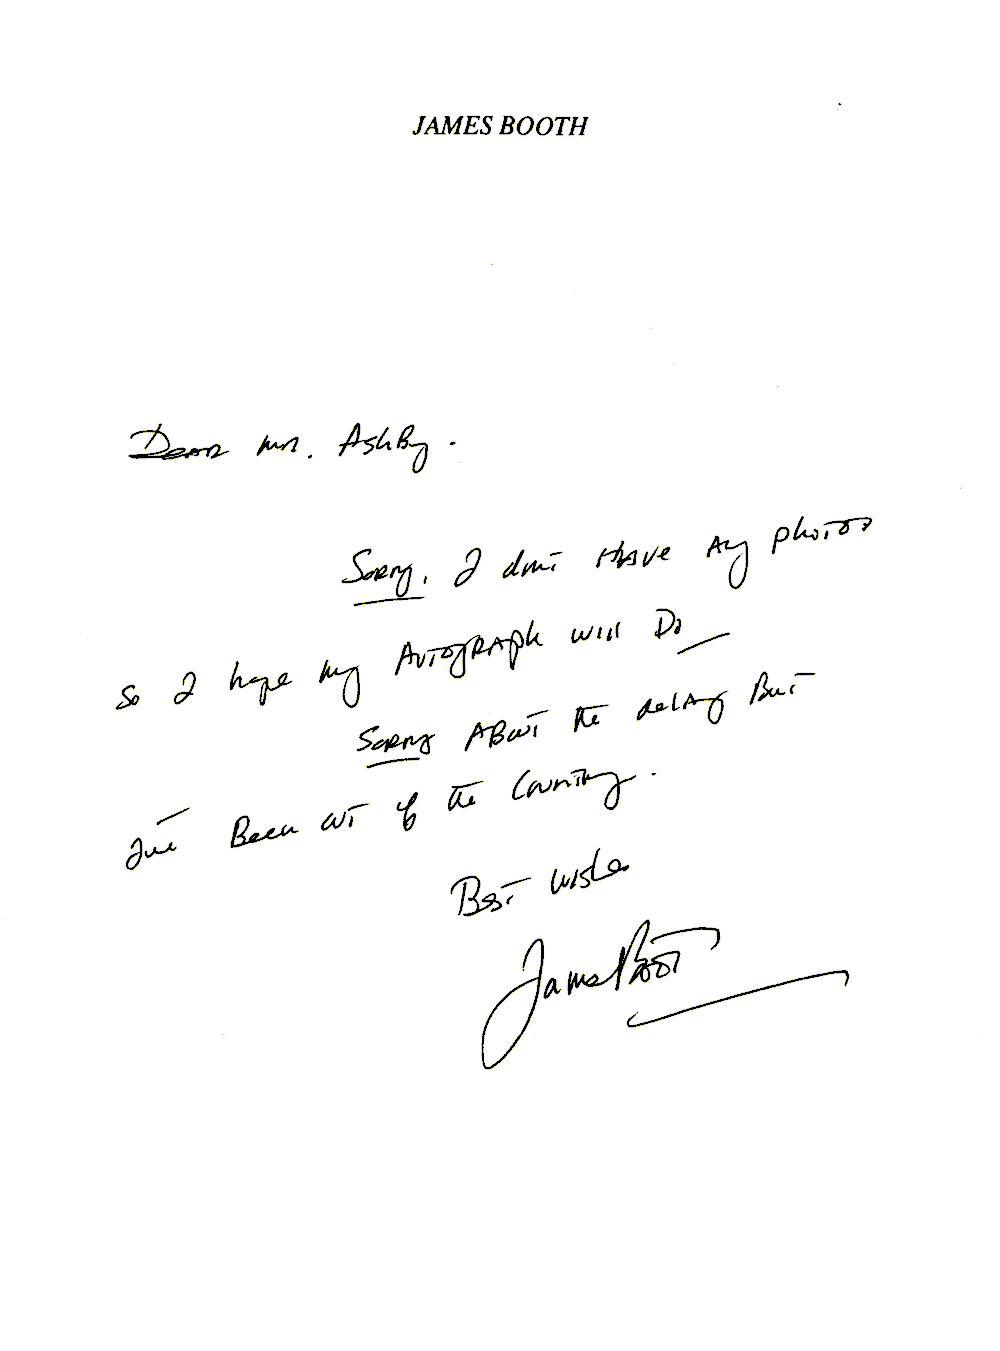 JAMES BOOTH
Dear Mr. AshBy.
Sorry, I dont Have Any photos
So I hope my AutogRAph will Do
Sorry ABout the delAy But
I've Been out of the Country.
Best wishes
James Booth